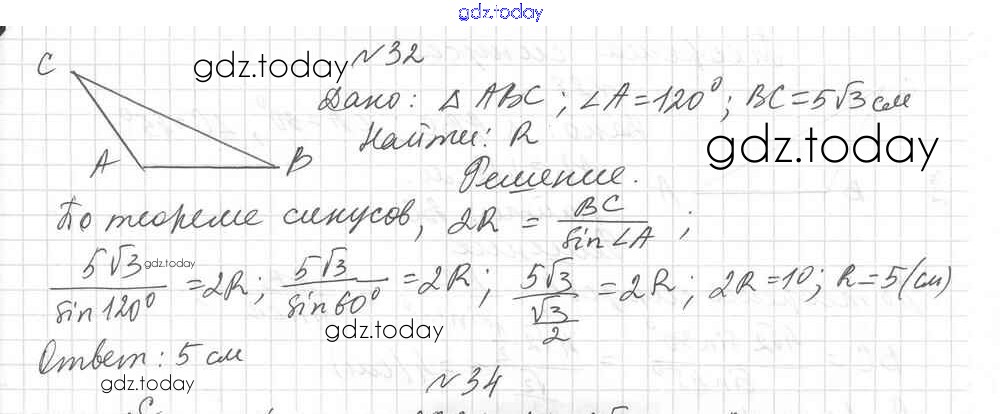 gdz.today
№32
C
gdz.today
Дано: △ABC; ∠A=120°; BC=5√3 см
Найти: R
gdz.today
A B
Решение.
По теореме синусов, 2R = BC / sin∠A ;
5√3 / sin120° = 2R; 5√3 / sin60° = 2R; 5√3 / (√3/2) = 2R; 2R=10; R=5(см)
gdz.today
gdz.today
Ответ: 5 см
gdz.today
№34